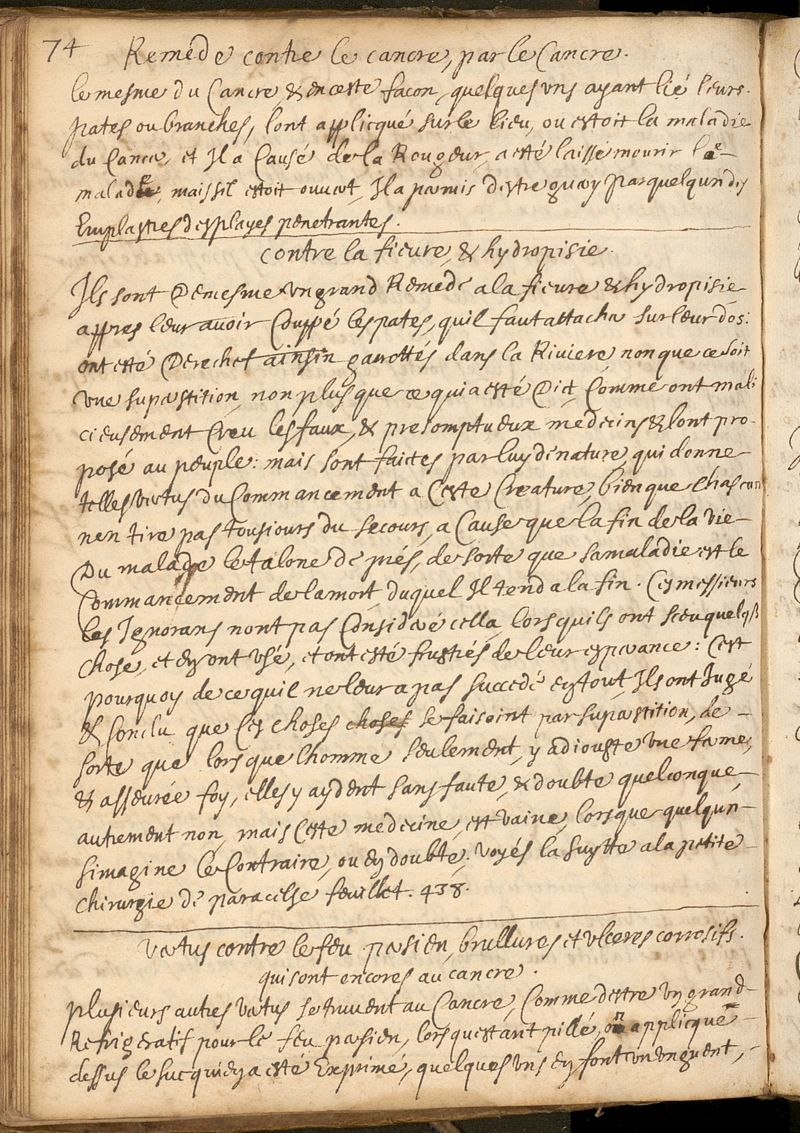 74 Remede contre le cancre, par le Cancre.
le mesme du Cancre & en ceste facon, quelques uns ayant lié leurs
pates ou branches, lont applicqué sur le lieu, ou estoit la maladie
du Cancre, et Il a Causé de la Rougeur, a esté laissé mourir le
malade, mais sil estoit ouvert, Il a permis destre guery par quelqun des
Emplastres des playes penetrantes.
contre la fieure, & hydropisie.
Ils sont De mesme un grand Remede a la fieure & hydropisie
appres leur avoir Couppé les pates, quil faut attacher sur leur dos:
ont esté Derechef ainsin garottés dans la Riviere non que ce soit
une superstition, non plus que ce qui a esté Dict, Comme ont mali
cieusement Creu les faux, & presomptueux medecins & lont pro-
posé au peuple: mais sont faictes par luy de nature, qui donne
telles vertus du Commancement a Ceste Creature, bien que Chascun
nen tire pas tousiours du secours, a Cause que la fin de la vie
Du malade le talone de prés, de sorte que sa maladie est le
Commancement de la mort duquel Il tend a la fin. Ces messieurs
les Ignorans nont pas Consideré cella, lors quils ont sceu quelq;
chose, et en ont usé, et ont esté frustrés de leur esperance: Cest
pourquoy de ce quil ne leur a pas succedé en tout, Ils ont Jugé
& Conclu que Ces choses choses se faisoint par superstition, de
sorte que lors que lhomme seulement, y adiouste une ferme,
& asseurée foy, elles y aydent sans faute, & doubte quelconque,
autrement non, mais Ceste medecine est vaine, lorsque quelqun
simagine le Contraire, ou en doubte. voyés la suytte a la petite
chirurgie de paracelse feuillet. 438.
vertus contre le feu persien, brullures et ulceres corrosifs.
qui sont encores au cancre.
plusieurs autres vertus se truvent au Cancre, Comme destre un grand
Refrigeratif pour le feu persien, lors questant pillé, on applicque
dessus le suc qui en a esté Exprimé, quelques uns en font un unguent,